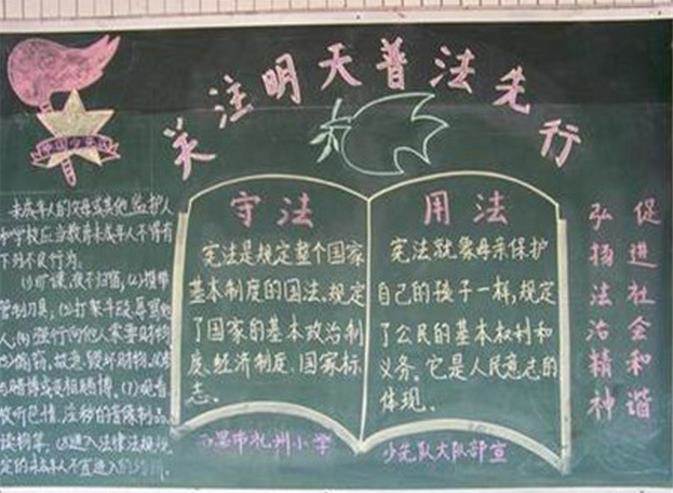 关注明天普法先行
中国少先队
未成年人的父母或其他监护人
和学校应当教育未成年人不得有
下列不良行为。
(1)旷课、夜不归宿,(2)携带
管制刀具,(3)打架斗殴辱骂他
人,(4)强行向他人索要财物
(5)偷窃,故意毁坏财物,
赌博或变相赌博。(7)观看
收听色情、淫秽的音像制品
读物等。(8)进入法律法规规
定的未成年人不宜进入的
守法
宪法是规定整个国家
基本制度的国法。规定
了国家的基本政治制
度、经济制度、国家标
志。
用法
宪法就象母亲保护
自己的孩子一样,规定
了公民的基本权利和
义务。它是人民意志的
体现。
促进社会和谐
弘扬法治精神
市礼州小学
少先队大队部宣